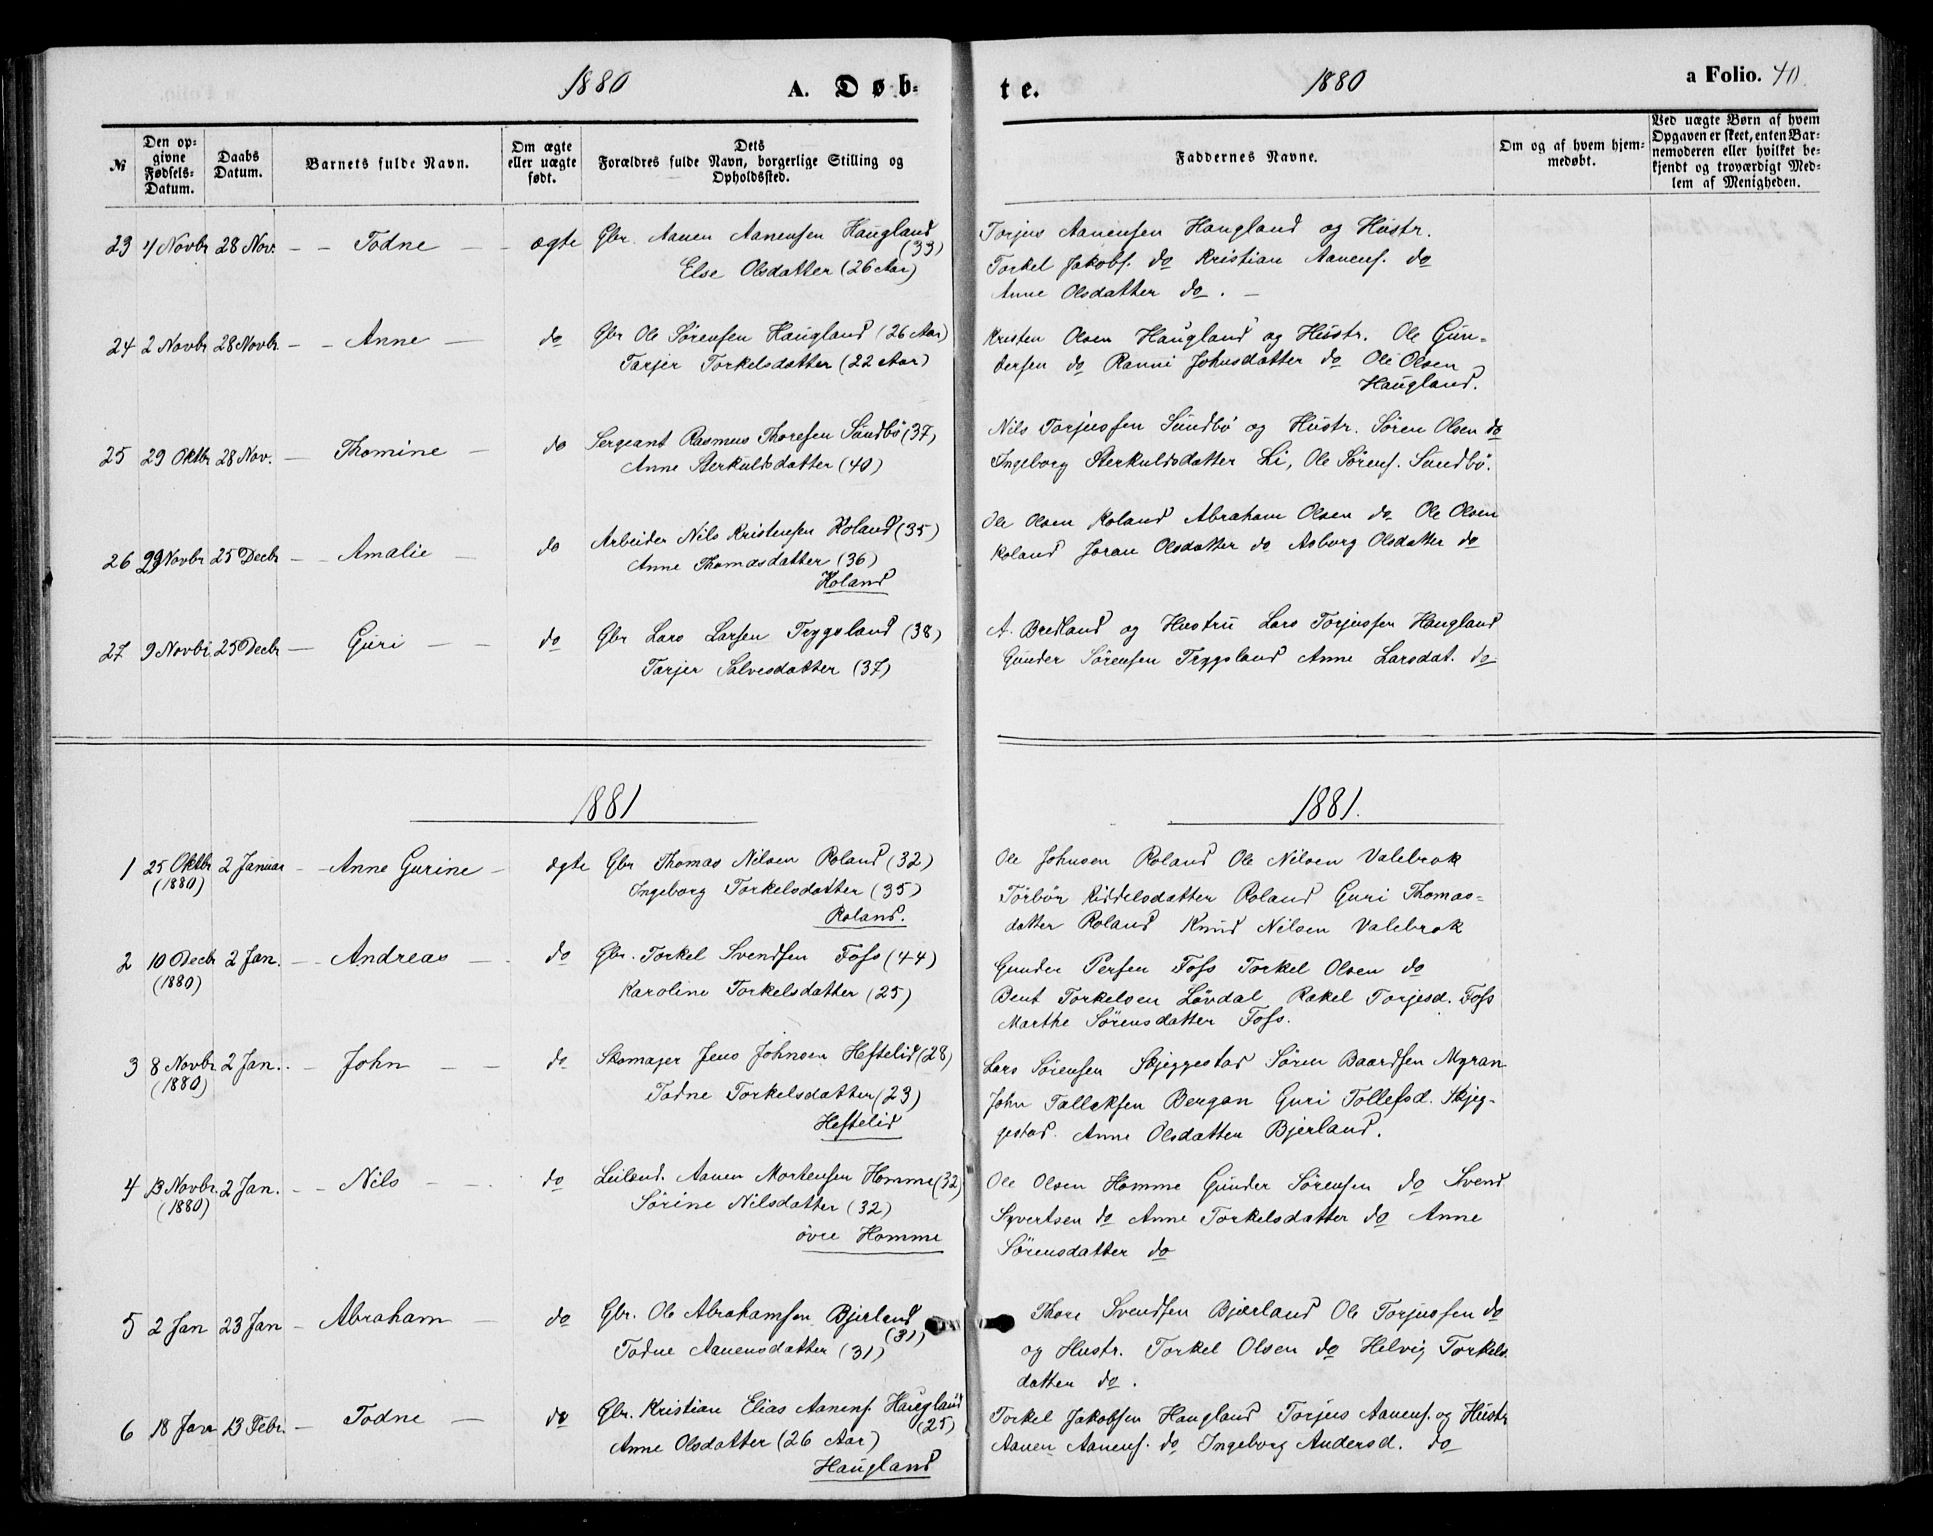 1880 A. Døb-
№
Den op-
givne
Fødsels-
Datum.
Daabs
Datum.
Barnets fulde Navn.
Om ægte
eller uægte
født.
Dets
Forældres fulde Navn, borgerlige Stilling og
Opholdssted.
23 4 Novbr 28 Nov. - - Todne - - ægte Gbr. Aanen Aanensen Haugland
(33)
Else Olsdatter (26 Aar)
24 2 Novbr 28 Novbr. - - Anne - do Gbr Ole Sørensen Haugland (26 Aar)
Tarjer Torkelsdatter (22 Aar)
25 29 Oktbr 28 Nov. - - Thomine - do Sergeant Rasmus Thoresen Sundbö (37)
Anne Sterkuldsdatter (40)
26 29 Novbr 25 Decbr - - Amalie - do Arbeider Nils Kristensen Koland (35)
Anne Thomasdatter (36)
Koland
27 9 Novbr 25 Decbr - Guri - - do Gbr Lars Larsen Trygsland (38)
Tarjer Salvesdatter (37)
1881
1 25 Oktbr 2 Januar - - Anne Gurine - ægte Gbr Thomas Nilsen Roland (32)
(1880)
Ingeborg Torkelsdatter (35)
Roland.
2 10 Decbr 2 Jan. - - Andreas - - do Gbr. Torkel Svendsen Foss (44)
(1880)
Karoline Torkelsdatter (25)
3 8 Novbr 2 Jan. - John - - do Skomager Jens Johnsen Heftelid (28)
(1880)
Todne Torkelsdatter (23)
Heftelid
4 13 Novbr. 2 Jan. - - Nils - - do Leilend. Aanen Mortensen Homme (32)
(1880)
Sørine Nilsdatter (32)
övre Homme
5 2 Jan 23 Jan - Abraham - do Gbr. Ole Abrahamsen Bjerland
(31)
Todne Aanensdatter (31)
6 18 Jan 13 Febr. - Todne - do Gbr. Kristian Elias Aanens. Haugland
(25)
Anne Olsdatter (26 Aar)
Haugland
te. 1880 a Folio. 40.
Faddernes Navne.
Om og af hvem hjem-
medøbt.
Ved uægte Børn af hvem
Opgaven er skeet, enten Bar-
nemoderen eller hvilket be-
kjendt og troværdigt Med-
lem af Menigheden.
Torjus Aanensen Haugland og Hustr.
Torkel Jakobs. do Kristian Aanens. do
Anne Olsdatter do. -
Kristen Olsen Haugland og Hustr. Ole Gun-
dersen do Ranni Johnsdatter do Ole Olsen
Haugland.
Nils Torjussen Sundbö og Hustr. Søren Olsen do
Ingeborg Sterkuldsdatter Li, Ole Sørens. Sundbö.
Ole Olsen Koland Abraham Olsen do Ole Olsen
Koland Joran Olsdatter do Asborg Olsdatter do
A. Bredland og Hustru Lars Torjussen Haugland
Gunder Sørensen Trygsland Anne Larsdat. do
1881.
Ole Johnsen Roland Ole Nilsen Valebrok
Törbör Kiddelsdatter Roland Guri Thomas-
datter Roland Knud Nilsen Valebrok
Gunder Persen Foss Torkel Olsen do
Bent Torkelsen Lövdal Rakel Torjesd. Foss
Marthe Sørensdatter Foss.
Lars Sørensen Skjeggestad Søren Baardsen Myran
John Tallaksen Bergan Guri Tollefsd. Skjeg-
gestad. Anne Olsdatter Bjerland.
Ole Olsen Homme Gunder Sørensen do Svend
Syvertsen do Anne Torkelsdatter do Anne
Sörensdatter do
Thore Svendsen Bjærland Ole Torjussen do
og Hustr. Torkel Olsen do Helvig Torkels-
datter do.
Torkel Jakobsen Haugland Torjus Aanens. og Hustr
Aanen Aanens. do Ingeborg Andersd. do